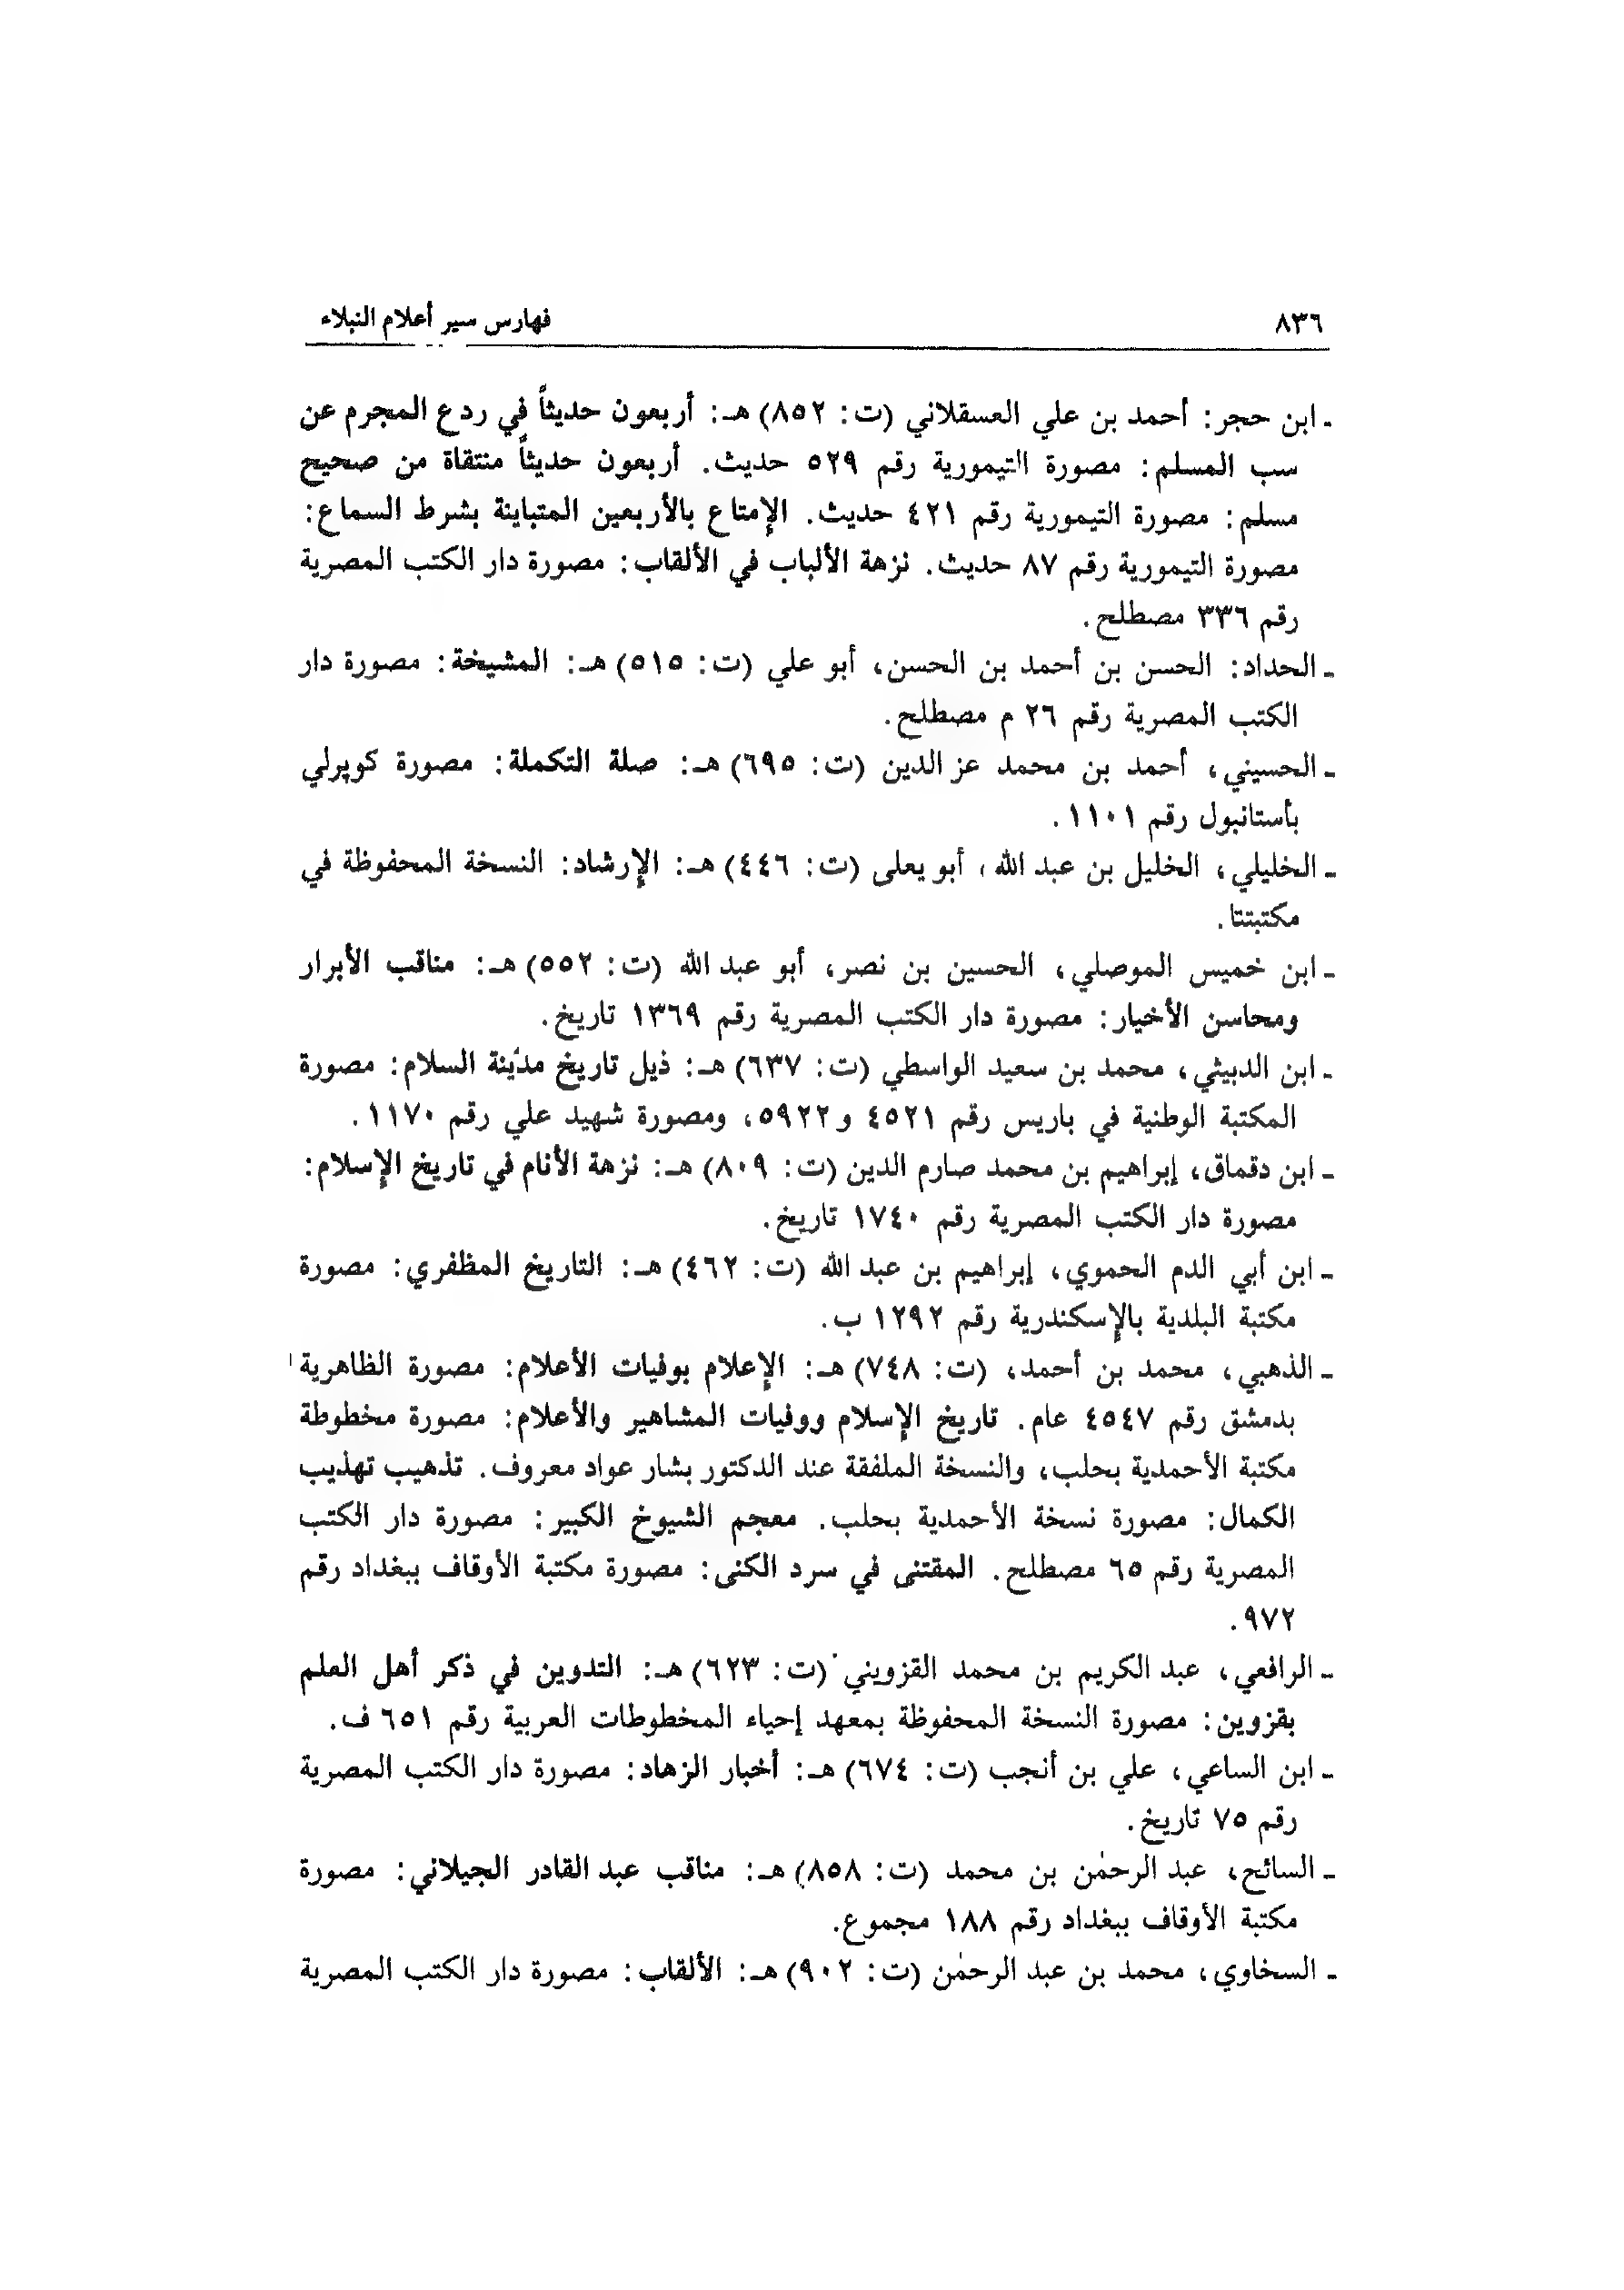 ٨٣٦
فهارس سير أعلام النبلاء
ـ ابن حجر: أحمد بن علي العسقلاني (ت: ٨٥٢) هـ: أربعون حديثاً في ردع المجرم عن
سب المسلم: مصورة التيمورية رقم ٥٢٩ حديث. أربعون حديثاً منتقاة من صحيح
مسلم: مصورة التيمورية رقم ٤٢١ حديث. الإمتاع بالأربعين المتباينة بشرط السماع:
مصورة التيمورية رقم ٨٧ حديث. نزهة الألباب في الألقاب: مصورة دار الكتب المصرية
رقم ٣٣٦ مصطلح.
ـ الحداد: الحسن بن أحمد بن الحسن، أبو علي (ت: ٥١٥) هـ: المشيخة: مصورة دار
الكتب المصرية رقم ٢٦ م مصطلح.
ـ الحسيني، أحمد بن محمد عز الدين (ت: ٦٩٥) هـ: صلة التكملة: مصورة كوپرلي
بأستانبول رقم ١١٠١.
ـ الخليلي، الخليل بن عبد الله، أبو يعلى (ت: ٤٤٦) هـ: الإرشاد: النسخة المحفوظة في
مكتبتنا.
ـ ابن خميس الموصلي، الحسين بن نصر، أبو عبد الله (ت: ٥٥٢) هـ: مناقب الأبرار
ومحاسن الأخيار: مصورة دار الكتب المصرية رقم ١٣٦٩ تاريخ.
ـ ابن الدبيثي، محمد بن سعيد الواسطي (ت: ٦٣٧) هـ: ذيل تاريخ مدينة السلام: مصورة
المكتبة الوطنية في باريس رقم ٤٥٢١ و٥٩٢٢، ومصورة شهيد علي رقم ١١٧٠.
ـ ابن دقماق، إبراهيم بن محمد صارم الدين (ت: ٨٠٩) هـ: نزهة الأنام في تاريخ الإسلام:
مصورة دار الكتب المصرية رقم ١٧٤٠ تاريخ.
ـ ابن أبي الدم الحموي، إبراهيم بن عبد الله (ت: ٤٦٢) هـ: التاريخ المظفري: مصورة
مكتبة البلدية بالإسكندرية رقم ١٢٩٢ ب.
ـ الذهبي، محمد بن أحمد، (ت: ٧٤٨) هـ: الإعلام بوفيات الأعلام: مصورة الظاهرية
بدمشق رقم ٤٥٤٧ عام. تاريخ الإسلام ووفيات المشاهير والأعلام: مصورة مخطوطة
مكتبة الأحمدية بحلب، والنسخة الملفقة عند الدكتور بشار عواد معروف. تذهيب تهذيب
الكمال: مصورة نسخة الأحمدية بحلب. معجم الشيوخ الكبير: مصورة دار الكتب
المصرية رقم ٦٥ مصطلح. المقتنى في سرد الكنى: مصورة مكتبة الأوقاف ببغداد رقم
٩٧٢.
ـ الرافعي، عبد الكريم بن محمد القزويني (ت: ٦٢٣) هـ: التدوين في ذكر أهل العلم
بقزوين: مصورة النسخة المحفوظة بمعهد إحياء المخطوطات العربية رقم ٦٥١ ف.
ـ ابن الساعي، علي بن أنجب (ت: ٦٧٤) هـ: أخبار الزهاد: مصورة دار الكتب المصرية
رقم ٧٥ تاريخ.
ـ السائح، عبد الرحمٰن بن محمد (ت: ٨٥٨) هـ: مناقب عبد القادر الجيلاني: مصورة
مكتبة الأوقاف ببغداد رقم ١٨٨ مجموع.
ـ السخاوي، محمد بن عبد الرحمٰن (ت: ٩٠٢) هـ: الألقاب: مصورة دار الكتب المصرية